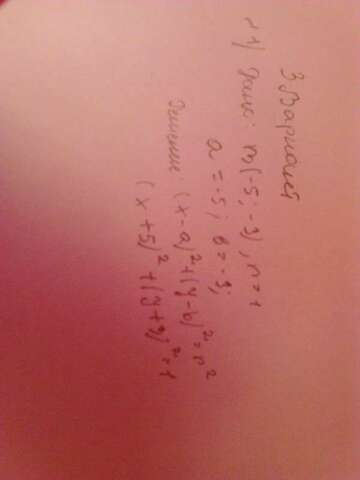 3 Вариант
1) Дано: m(-5; -3), r=1
a = -5; b = -3;
Решение: (x-a)²+(y-b)²=r²
(x+5)²+(y+3)²=1